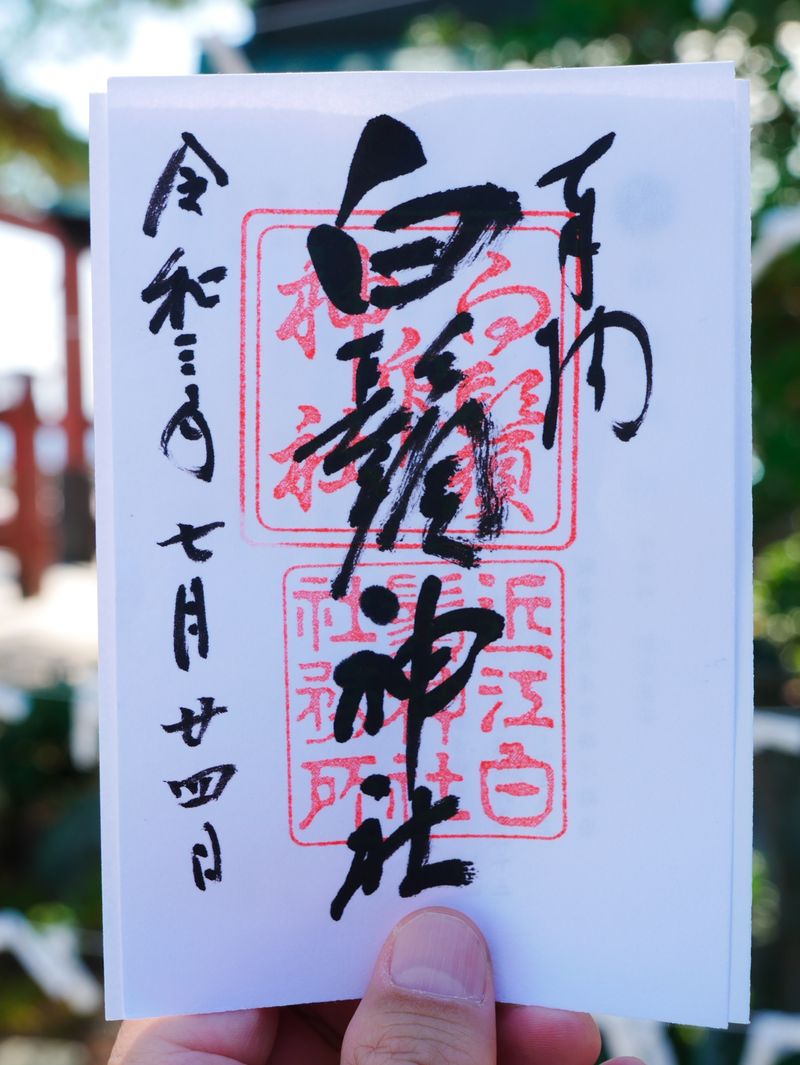 奉納
白鬚神社
令和三年七月廿四日
白鬚
神社
近江白
鬚神社
社務所